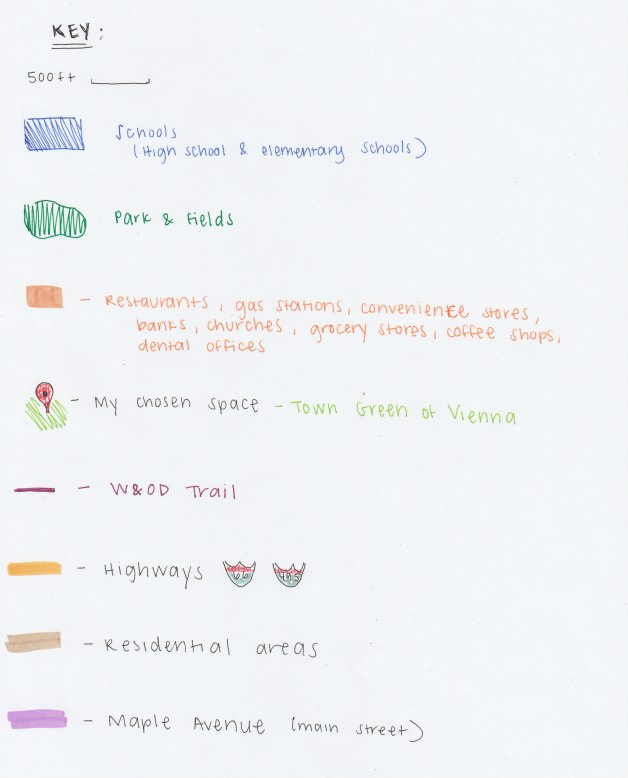 KEY:
500ft
Schools
(High school & elementary schools)
Park & Fields
- Restaurants, gas stations, convenience stores,
banks, churches, grocery stores, coffee shops,
dental offices
- My chosen space - Town Green of Vienna
- W&OD Trail
- Highways 66 495
- Residential areas
- Maple Avenue (main street)